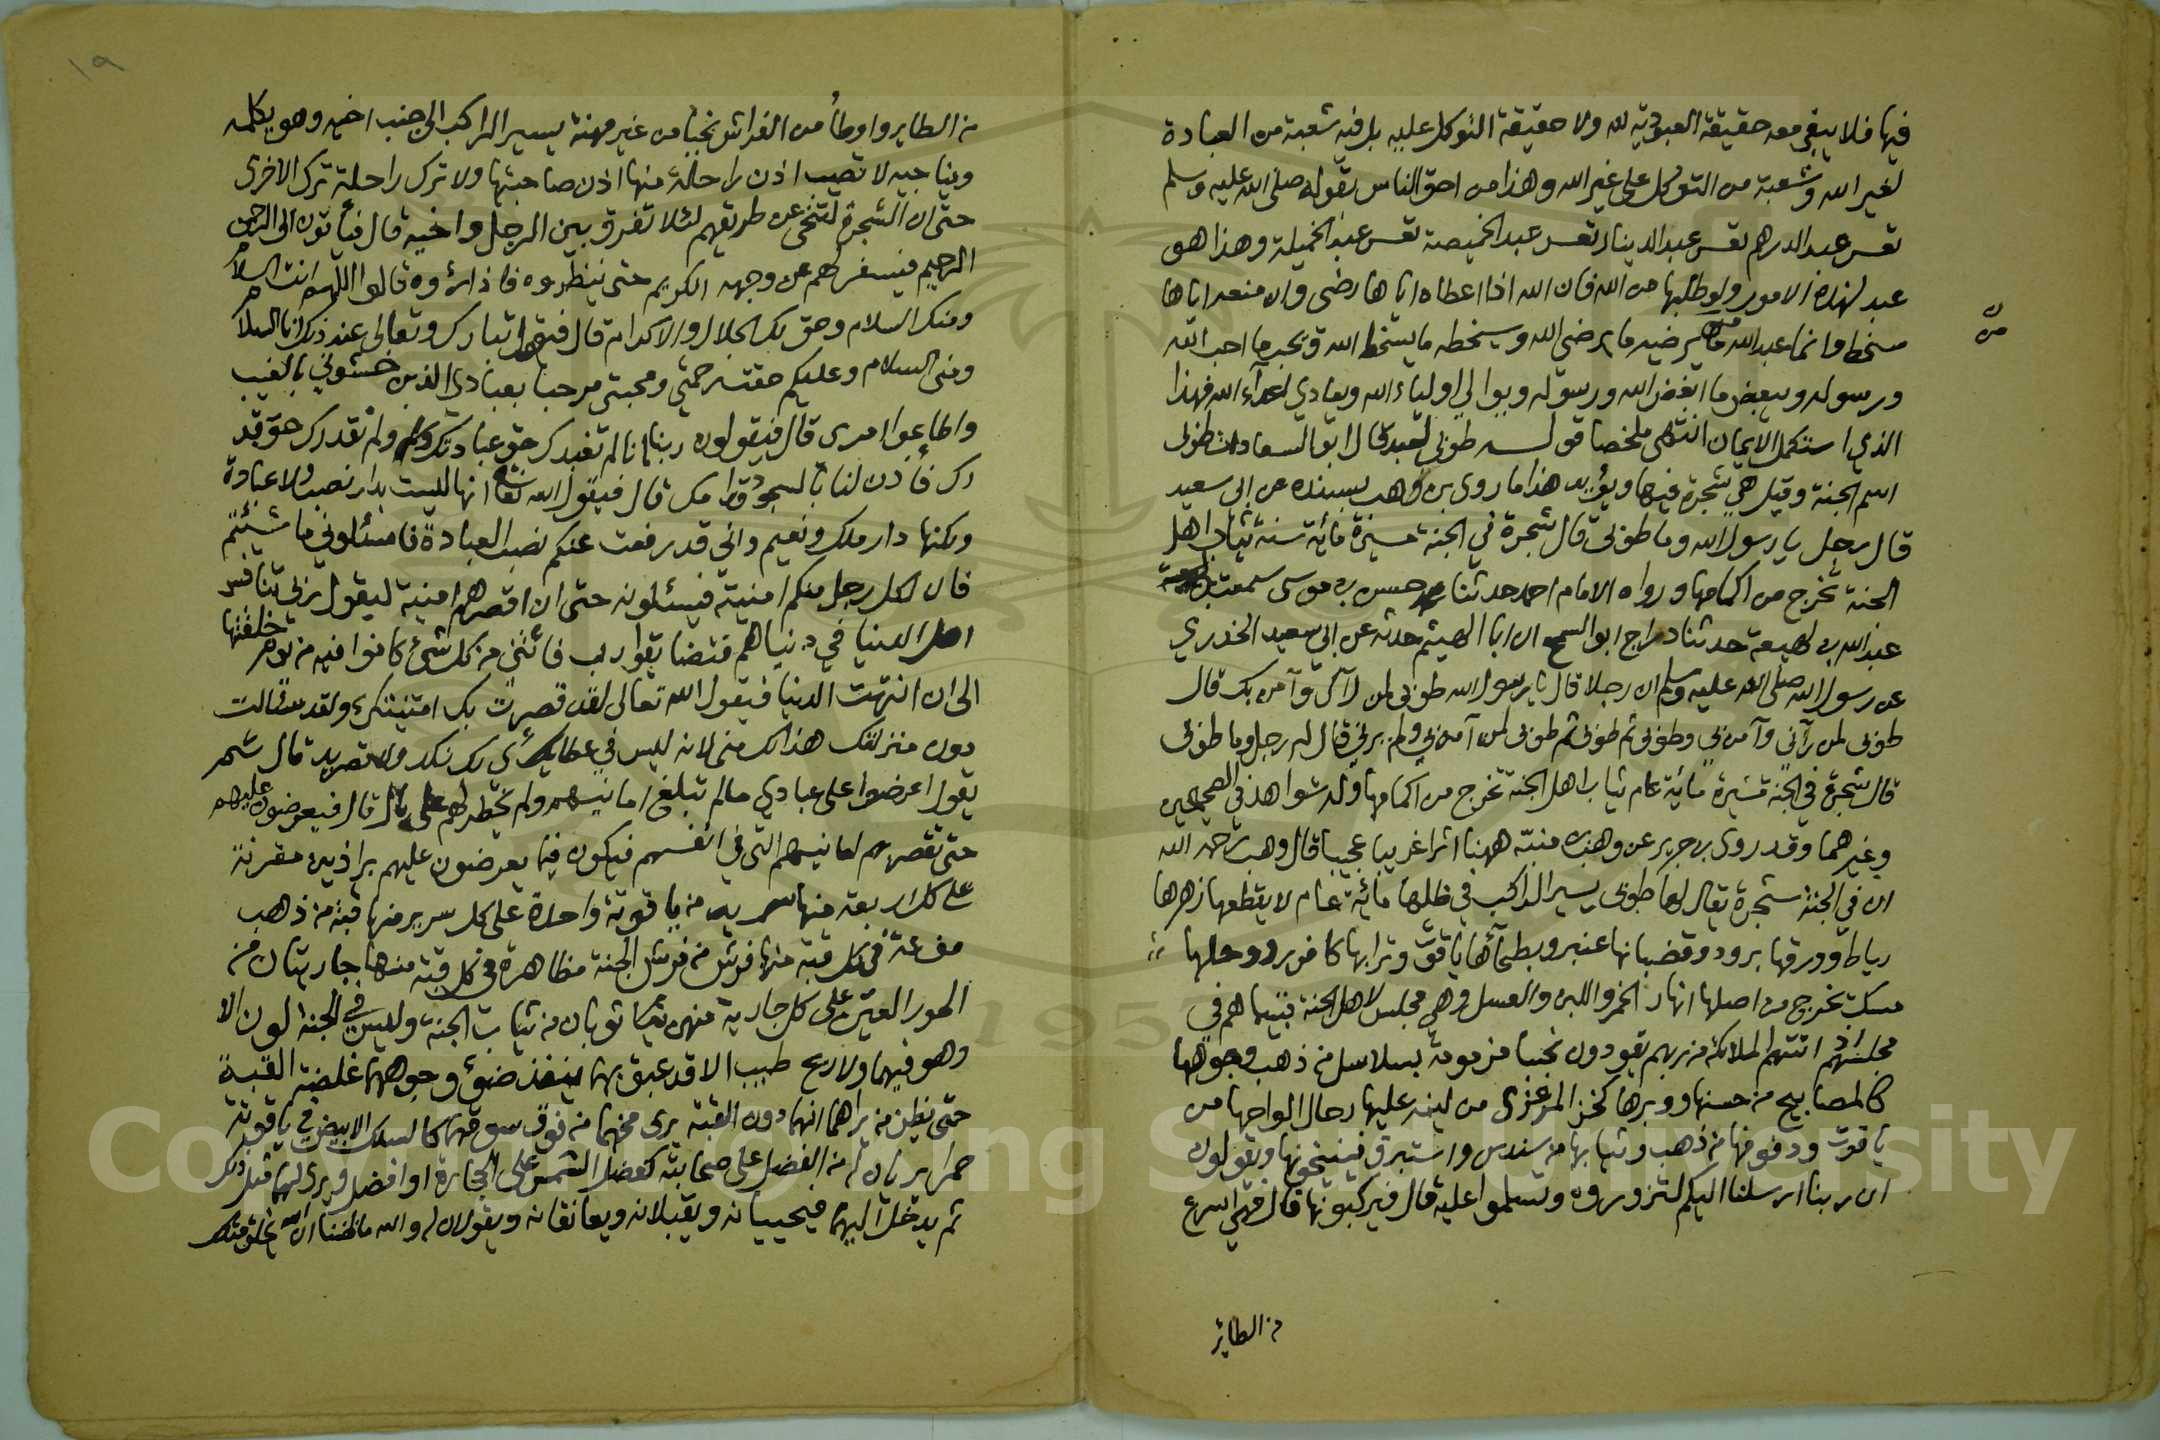 فيها فلا يبقى معه حقيقة العبودية لله ولا حقيقة التوكل عليه بل فيه شعبة من العبادة
لغير الله وشعبة من التوكل على غير الله وهذا من احق الناس بقوله صلى الله عليه وسلم
تعس عبد الدرهم تعس عبد الدينار تعس عبد الخميصة تعس عبد الخميلة وهذا هو
عبد لهذه الامور ولو طلبها من الله فان الله اذا اعطاه اياها رضى وان منعه اياها
سخط وانما عبد الله من يرضيه ما يرضى الله ويسخطه ما يسخط الله ويحب ما احب الله
ورسوله ويبغض ما ابغض الله ورسوله ويوالي اولياء الله ويعادي اعداء الله فهذا
الذي استكمل الايمان انتهى ملخصا قوله طوبى لعبد قال ابو السعادات طوبى
اسم الجنة وقيل هي شجرة فيها ويؤيد هذا ما روى بن وهب بسنده عن ابي سعيد
قال رجل يا رسول الله وما طوبى قال شجرة في الجنة مسيرة مائة سنة ثياب اهل
الجنة تخرج من اكمامها ورواه الامام احمد حدثنا حسن بن موسى سمعت
عبد الله بن لهيعة حدثنا دراج ابو السمح ان ابا الهيثم حدثه عن ابي سعيد الخدري
عن رسول الله صلى الله عليه وسلم ان رجلا قال يا رسول الله طوبى لمن رآك وآمن بك قال
طوبى لمن رآني وآمن بي وطوبى ثم طوبى ثم طوبى لمن آمن بي ولم يرني قال له رجل وما طوبى
قال شجرة في الجنة مسيرة مائة عام ثياب اهل الجنة تخرج من اكمامها وله شواهد في الصحيحين
وغيرهما وقد روى بن جرير عن وهب بن منبه ههنا اثرا غريبا عجيبا قال وهب رحمه الله
ان في الجنة شجرة يقال لها طوبى يسير الراكب في ظلها مائة عام لا يقطعها زهرها
رياط وورقها برود وقضبانها عنبر وبطحآؤها ياقوت وترابها كافور ووحلها
مسك تخرج من اصلها انهار الخمر واللبن والعسل وهي مجلس لاهل الجنة فبينما هم في
مجلسهم اذ اتتهم الملائكة من ربهم يقودون نجبا مزمومة بسلاسل من ذهب وجوهها
كالمصابيح من حسنها ووبرها كخز المرعزى من لينه عليها رحال الواحها من
ياقوت ودفوفها من ذهب وثيابها من سندس واستبرق فينيخونها ويقولون
ان ربنا ارسلنا اليكم لتزوروه وتسلموا عليه قال فيركبونها قال فهي اسرع
من الطائر
١٩
من الطاير واوطأ من الفراش نجبا من غير مهنة يسير الراكب الى جنب اخيه وهو يكلمه
ويناجيه لا تصيب اذن راحلة منها اذن صاحبتها ولا ترك راحلة ترك الاخرى
حتى ان الشجرة لتنحى عن طريقهم لئلا تفرق بين الرجل واخيه قال فيأتون الى الرحمن
الرحيم فيسفر لهم عن وجهه الكريم حتى ينظروه فاذا رأوه قالوا اللهم انت السلام
ومنك السلام وحق لك الجلال والاكرام قال فيقول تبارك وتعالى عند ذلك انا السلام
ومنى السلام وعليكم حقت رحمتي ومحبتي مرحبا بعبادي الذين خشوني بالغيب
واطاعوا امرى قال فيقولون ربنا انا لم نعبدك حق عبادتك ولم نقدرك حق قد
رك فأذن لنا بالسجود قدامك قال فيقول الله تعالى انها ليست بدار نصب ولا عبادة
ولكنها دار ملك ونعيم واني قد رفعت عنكم نصب العبادة فاسئلوني ما شئتم
فان لكل رجل منكم امنية فيسئلونه حتى ان اقصرهم امنية ليقول ربي تنافس
اهل الدنيا في دنياهم فتضايقوا رب فأتني من كل شئ كانوا فيه من يوم خلقتها
الى ان انتهت الدنيا فيقول الله تعالى لقد قصرت بك امنيتك ولقد سئالت
دون منزلتك هذا لك مني لانه ليس في عطائي نكد ولا تصريد قال ثم
يقول اعرضوا على عبادي مالم تبلغ امانيهم ولم يخطر لهم على بال قال فيعرضون عليهم
حتى تقصر بهم امانيهم التي في انفسهم فيكون فيما يعرضون عليهم براذين مقرنة
على كل اربعة منها سرير من ياقوتة واحدة على كل سرير منها قبة من ذهب
مفرغة في كل قبة منها فرش من فرش الجنة مظاهرة في كل قبة منها جاريتان من
الحور العين على كل جارية منهن ثوبان من ثياب الجنة وليس في الجنة لون الا
وهو فيهما ولا ريح طيب الا قد عبق بهما ينفذ ضوء وجوههما غلظ القبة
حتى يظن من يراهما انهما دون القبة يرى مخهما من فوق سوقهما كالسلك الابيض في ياقوتة
حمراء يريان له من الفضل على صحابته كفضل الشمس على الحجارة او افضل ويرى لهما مثل ذلك
ثم يدخل اليهما فيحييانه ويقبلانه ويعانقانه ويقولان له والله ما ظننا ان الله يخلق مثلك